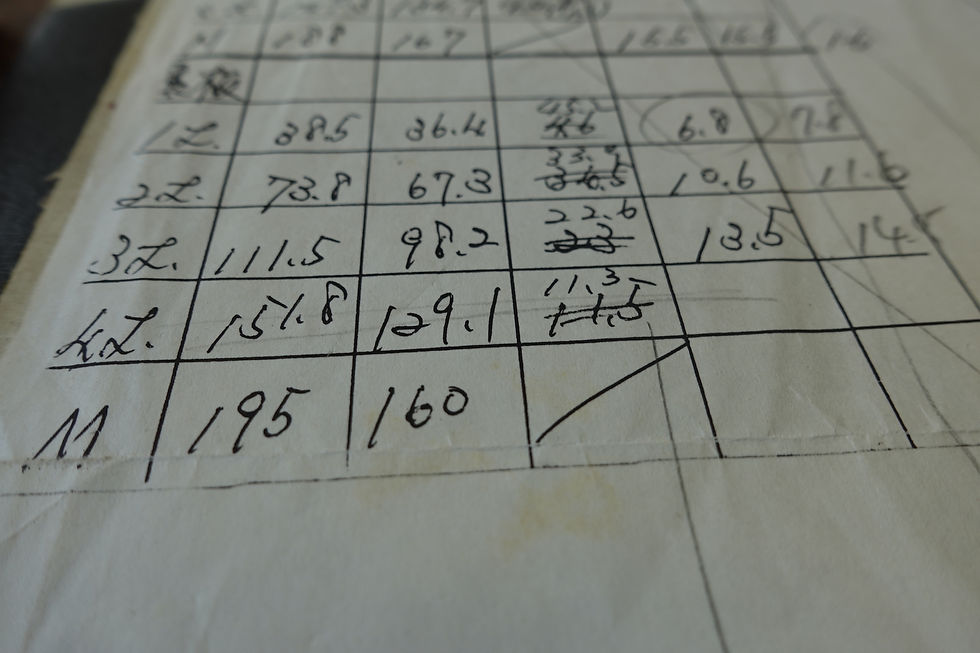 M 188 167 16.5
1L. 38.5 36.4 45.2 46 6.8 7.8
2L. 73.8 67.3 33.9 34.5 10.6 11.6
3L. 111.5 98.2 22.6 23 13.5 14.5
4L. 151.8 129.1 11.3 11.5
M 195 160